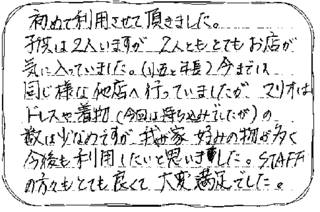 初めて利用させて頂きました。
子供は2人いますが 2人ともとてもお店が
気に入っていました。(小五と年長)今までは
同じ様な他店へ行っていましたが マリオは
ドレスや着物(今回は持ち込みでしたが)の
数は少なめですが 我が家 好みの物が多く
今後も利用したいと思いました。STAFF
の方々もとても良くて 大変満足でした。